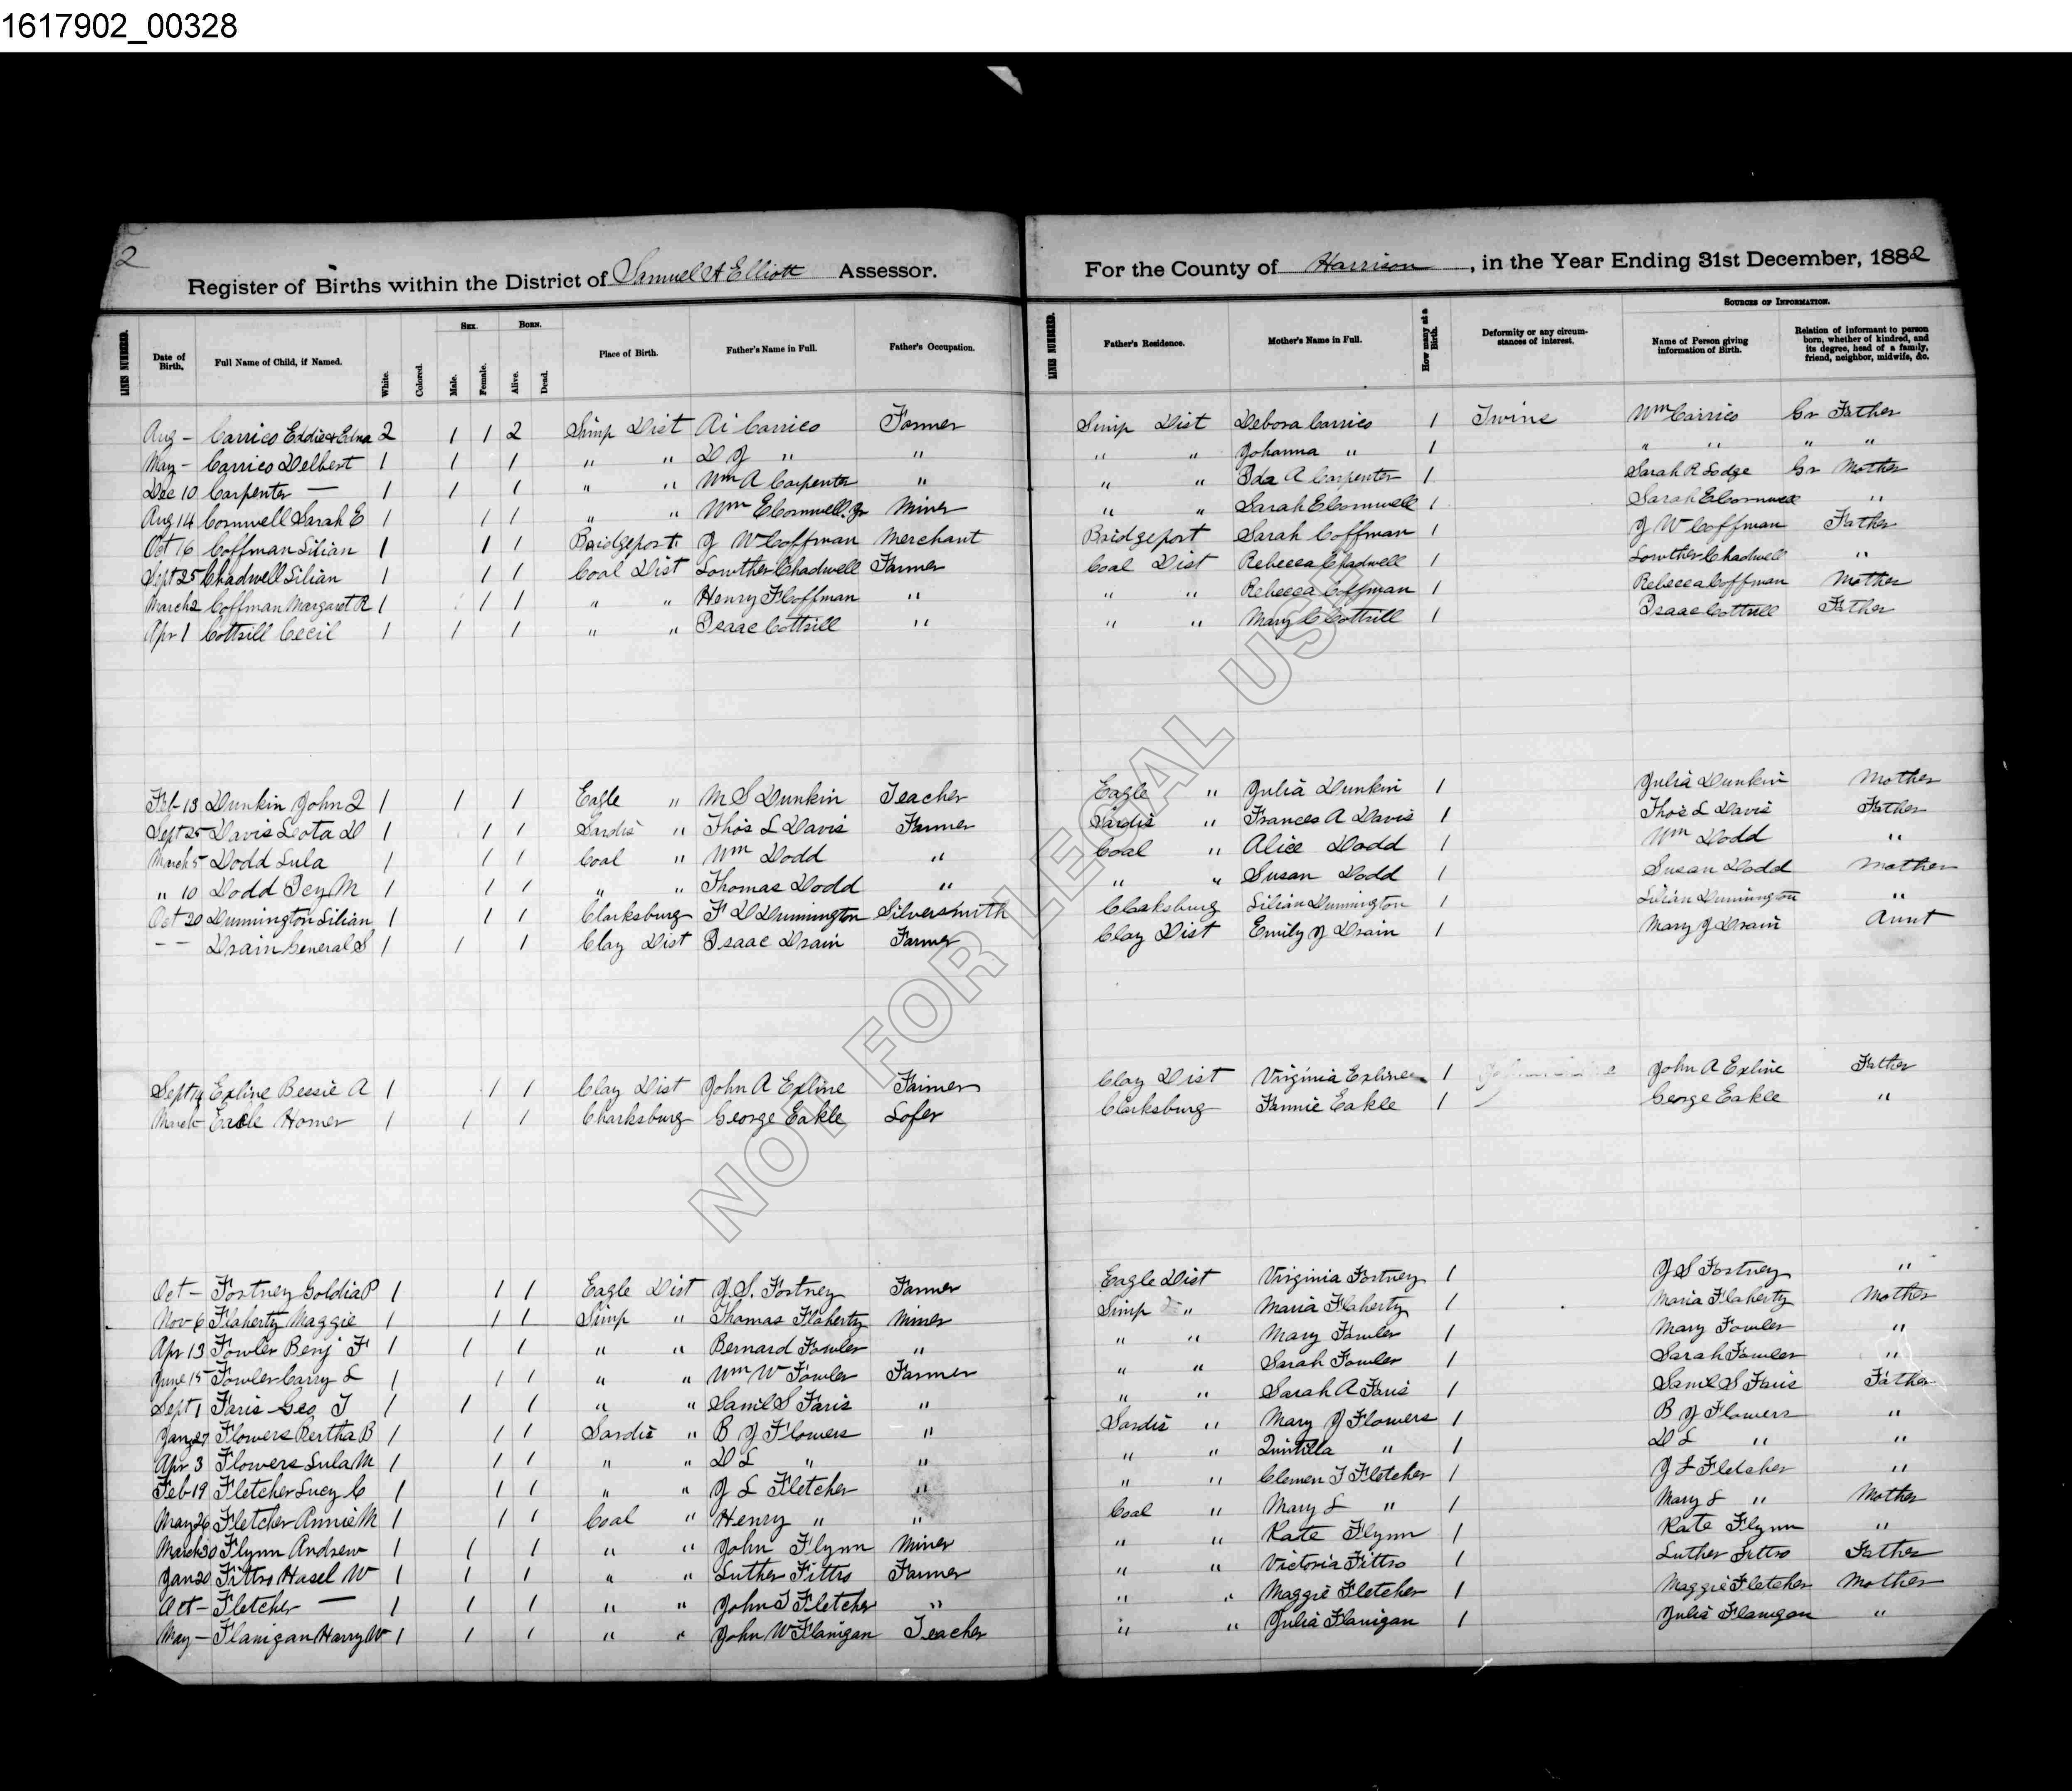 1617902_00328
2
Register of Births within the District of Samuel A Elliott Assessor.
For the County of Harrison, in the Year Ending 31st December, 1882
LINES NUMBERED. Date of Birth. Full Name of Child, if Named. White. Colored. Sex. Male. Female. Born. Alive. Dead. Place of Birth. Father's Name in Full. Father's Occupation. LINES NUMBERED. Father's Residence. Mother's Name in Full. How many at a Birth. Deformity or any circumstances of interest. Sources of Information. Name of Person giving information of Birth. Relation of informant to person born, whether of kindred, and its degree, head of a family, friend, neighbor, midwife, &c.
Aug – Carrico Eddie & Edna 2 1 1 2 Simp Dist Ai Carrico Farmer Simp Dist Debora Carrico 1 Twins Wm Carrico Gr Father
May – Carrico Delbert 1 1 1 " " D J " " " " Johanna " 1 " " " "
Dec 10 Carpenter — 1 1 1 " " Wm A Carpenter " " " Ida A Carpenter 1 Sarah R Lodge Gr Mother
Aug 14 Cornwell Sarah E 1 1 1 " " Wm E Cornwell Jr Miner " " Sarah E Cornwell 1 Sarah E Cornwell "
Oct 16 Coffman Lilian 1 1 1 Bridgeport J W Coffman Merchant Bridgeport Sarah Coffman 1 J W Coffman Father
Sept 25 Chadwell Lilian 1 1 1 Coal Dist Lowther Chadwell Farmer Coal Dist Rebecca Chadwell 1 Lowther Chadwell "
March 2 Coffman Margaret R 1 1 1 " " Henry F Coffman " " " Rebecca Coffman 1 Rebecca Coffman Mother
Apr 1 Cottrill Cecil 1 1 1 " " Isaac Cottrill " " " Mary C Cottrill 1 Isaac Cottrill Father
Feb 13 Dunkin John Q 1 1 1 Eagle " M S Dunkin Teacher Eagle " Julia Dunkin 1 Julia Dunkin Mother
Sept 25 Davis Leota D 1 1 1 Sardis " Thos L Davis Farmer Sardis " Frances A Davis 1 Thos L Davis Father
March 5 Dodd Lula 1 1 1 Coal " Wm Dodd " Coal " Alice Dodd 1 Wm Dodd "
" 10 Dodd Icy M 1 1 1 " " Thomas Dodd " " " Susan Dodd 1 Susan Dodd Mother
Oct 20 Dunnington Lilian 1 1 1 Clarksburg F D Dunnington Silversmith Clarksburg Lilian Dunnington 1 Lilian Dunnington "
– – Drain General S 1 1 1 Clay Dist Isaac Drain Farmer Clay Dist Emily J Drain 1 Mary J Drain Aunt
Sept 14 Exline Bessie A 1 1 1 Clay Dist John A Exline Farmer Clay Dist Virginia Exline 1 John A Exline Father
March Eakle Homer 1 1 1 Charksburg George Eakle Lofer Clarksburg Fannie Eakle 1 George Eakle "
Oct – Fortney Goldia P 1 1 1 Eagle Dist J. S. Fortney Farmer Eagle Dist Virginia Fortney 1 J S Fortney "
Nov 6 Flaherty Maggie 1 1 1 Simp " Thomas Flaherty Miner Simp " Maria Flaherty 1 Maria Flaherty Mother
Apr 13 Fowler Benj F 1 1 1 " " Bernard Fowler " " " Mary Fowler 1 Mary Fowler "
June 15 Fowler Carry L 1 1 1 " " Wm W Fowler Farmer " " Sarah Fowler 1 Sarah Fowler "
Sept 1 Faris Geo T 1 1 1 " " Saml S Faris " " " Sarah A Faris 1 Saml S Faris Father
Jany 27 Flowers Bertha B 1 1 1 Sardis " B J Flowers " Sardis " Mary J Flowers 1 B J Flowers "
Apr 3 Flowers Lula M 1 1 1 " " D L " " " " Quintilla " 1 D L " "
Feb 19 Fletcher Lucy C 1 1 1 " " J L Fletcher " " " Clemen T Fletcher 1 J L Fletcher "
May 26 Fletcher Annie M 1 1 1 Coal " Henry " " Coal " Mary L " 1 Mary L " Mother
March 30 Flynn Andrew 1 1 1 " " John Flynn Miner " " Kate Flynn 1 Kate Flynn "
Jan 20 Fittro Hasel W 1 1 1 " " Luther Fittro Farmer " " Victoria Fittro 1 Luther Fittro Father
Oct – Fletcher — 1 1 1 " " John T Fletcher " " " Maggie Fletcher 1 Maggie Fletcher Mother
May – Flanigan Harry W 1 1 1 " " John W Flanigan Teacher " " Julia Flanigan 1 Julia Flanigan "
NOT FOR LEGAL USE